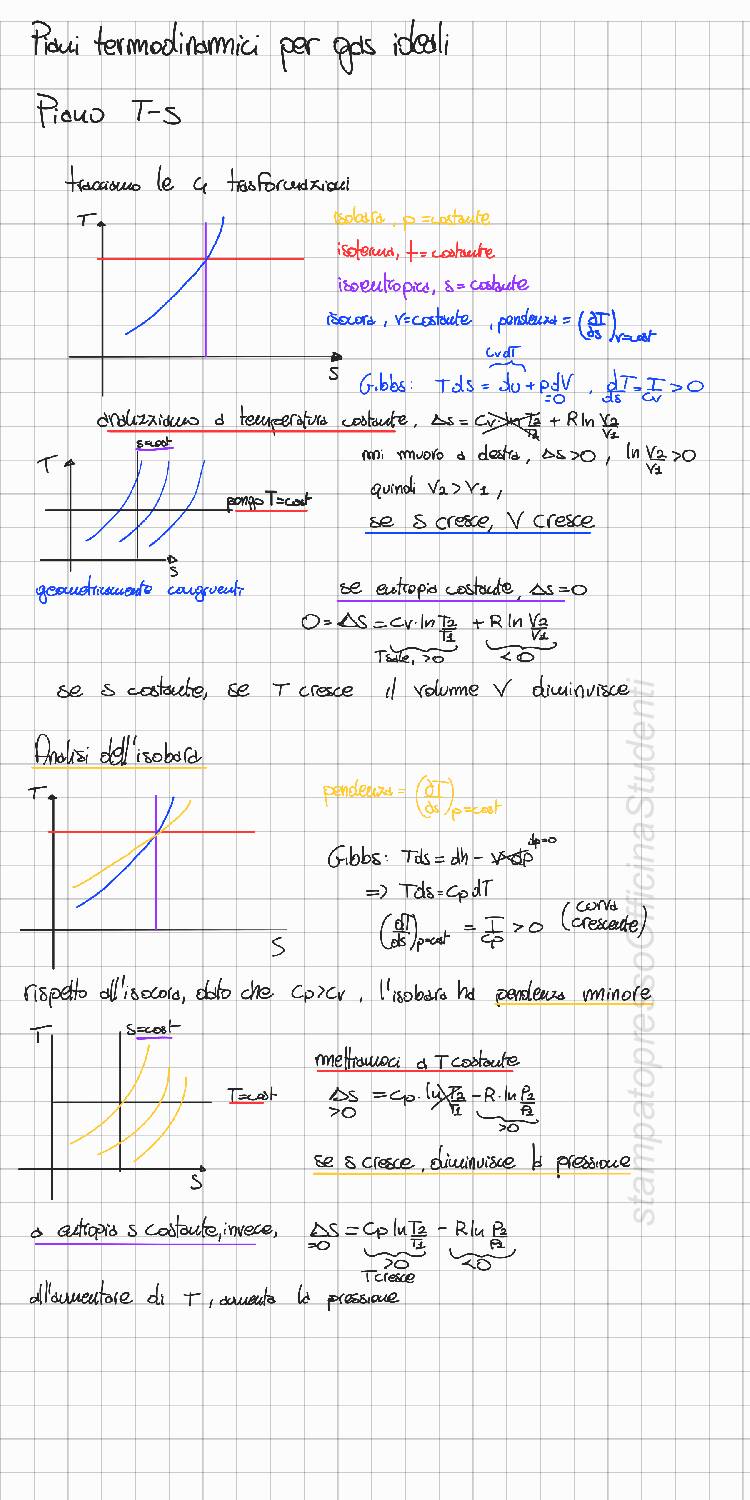 Piani termodinamici per gas ideali
Piano T-s
tracciamo le 4 trasformazioni
T
s
isobara, p = costante
isoterma, t = costante
isoentropica, s = costante
isocora, v = costante, pendenza = (dT/ds)v=cost
CvdT
Gibbs: Tds = du + pdV, dT/ds = T/Cv > 0
=0
analizziamo a temperatura costante, Δs = Cv·ln T2/T1 + R ln V2/V1
s=cost
T
pongo T=cost
s
geometricamente congruenti
mi muovo a destra, Δs>0, ln V2/V1 >0
quindi V2>V1,
se s cresce, V cresce
se entropia costante, Δs=0
0 = Δs = Cv·ln T2/T1 + R ln V2/V1
Tsale, >0 <0
se s costante, se T cresce il volume V diminuisce
Analisi dell'isobara
T
S
pendenza = (dT/ds)p=cost
Gibbs: Tds = dh - vdp dp=0
=> Tds = CpdT
(dT/ds)p=cost = T/Cp > 0 (curva crescente)
rispetto all'isocora, dato che Cp>Cv, l'isobara ha pendenza minore
T
s=cost
T=cost
S
mettiamoci a T costante
Δs = Cp·ln T2/T1 - R·ln P2/P1
>0 >0
se s cresce, diminuisce la pressione
a entropia s costante, invece, Δs = Cp ln T2/T1 - R ln P2/P1
=0 >0 <0
T cresce
all'aumentare di T, aumenta la pressione
stampatopressoOfficinaStudenti